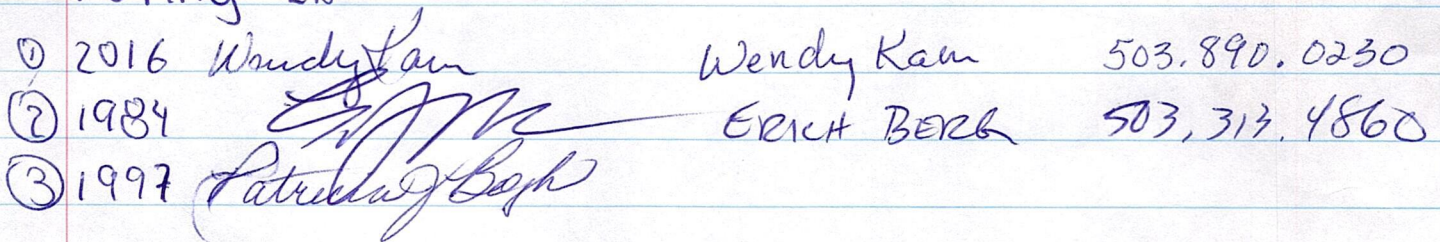 ① 2016 Wendy Kam Wendy Kam 503.890.0230
② 1984 ERICH BERG 503.313.4860
③ 1997 Patricia J